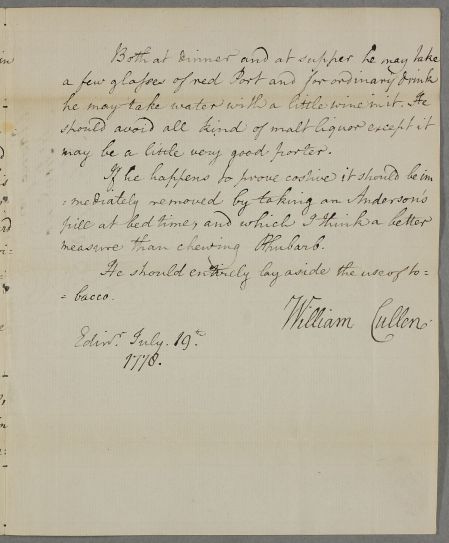 Both at dinner and at supper he may take
a few glasses of red Port and for ordinary drink
he may take water with a little wine in it. He
should avoid all kind of malt liquor except it
may be a little very good porter.
If he happens to prove costive it should be im
=mediately removed by taking an Anderson's
pill at bed time, and which I think a better
measure than chewing Rhubarb.
He should entirely lay aside the use of to=
=bacco.
William Cullen
Edinr. July. 19th.
1778.